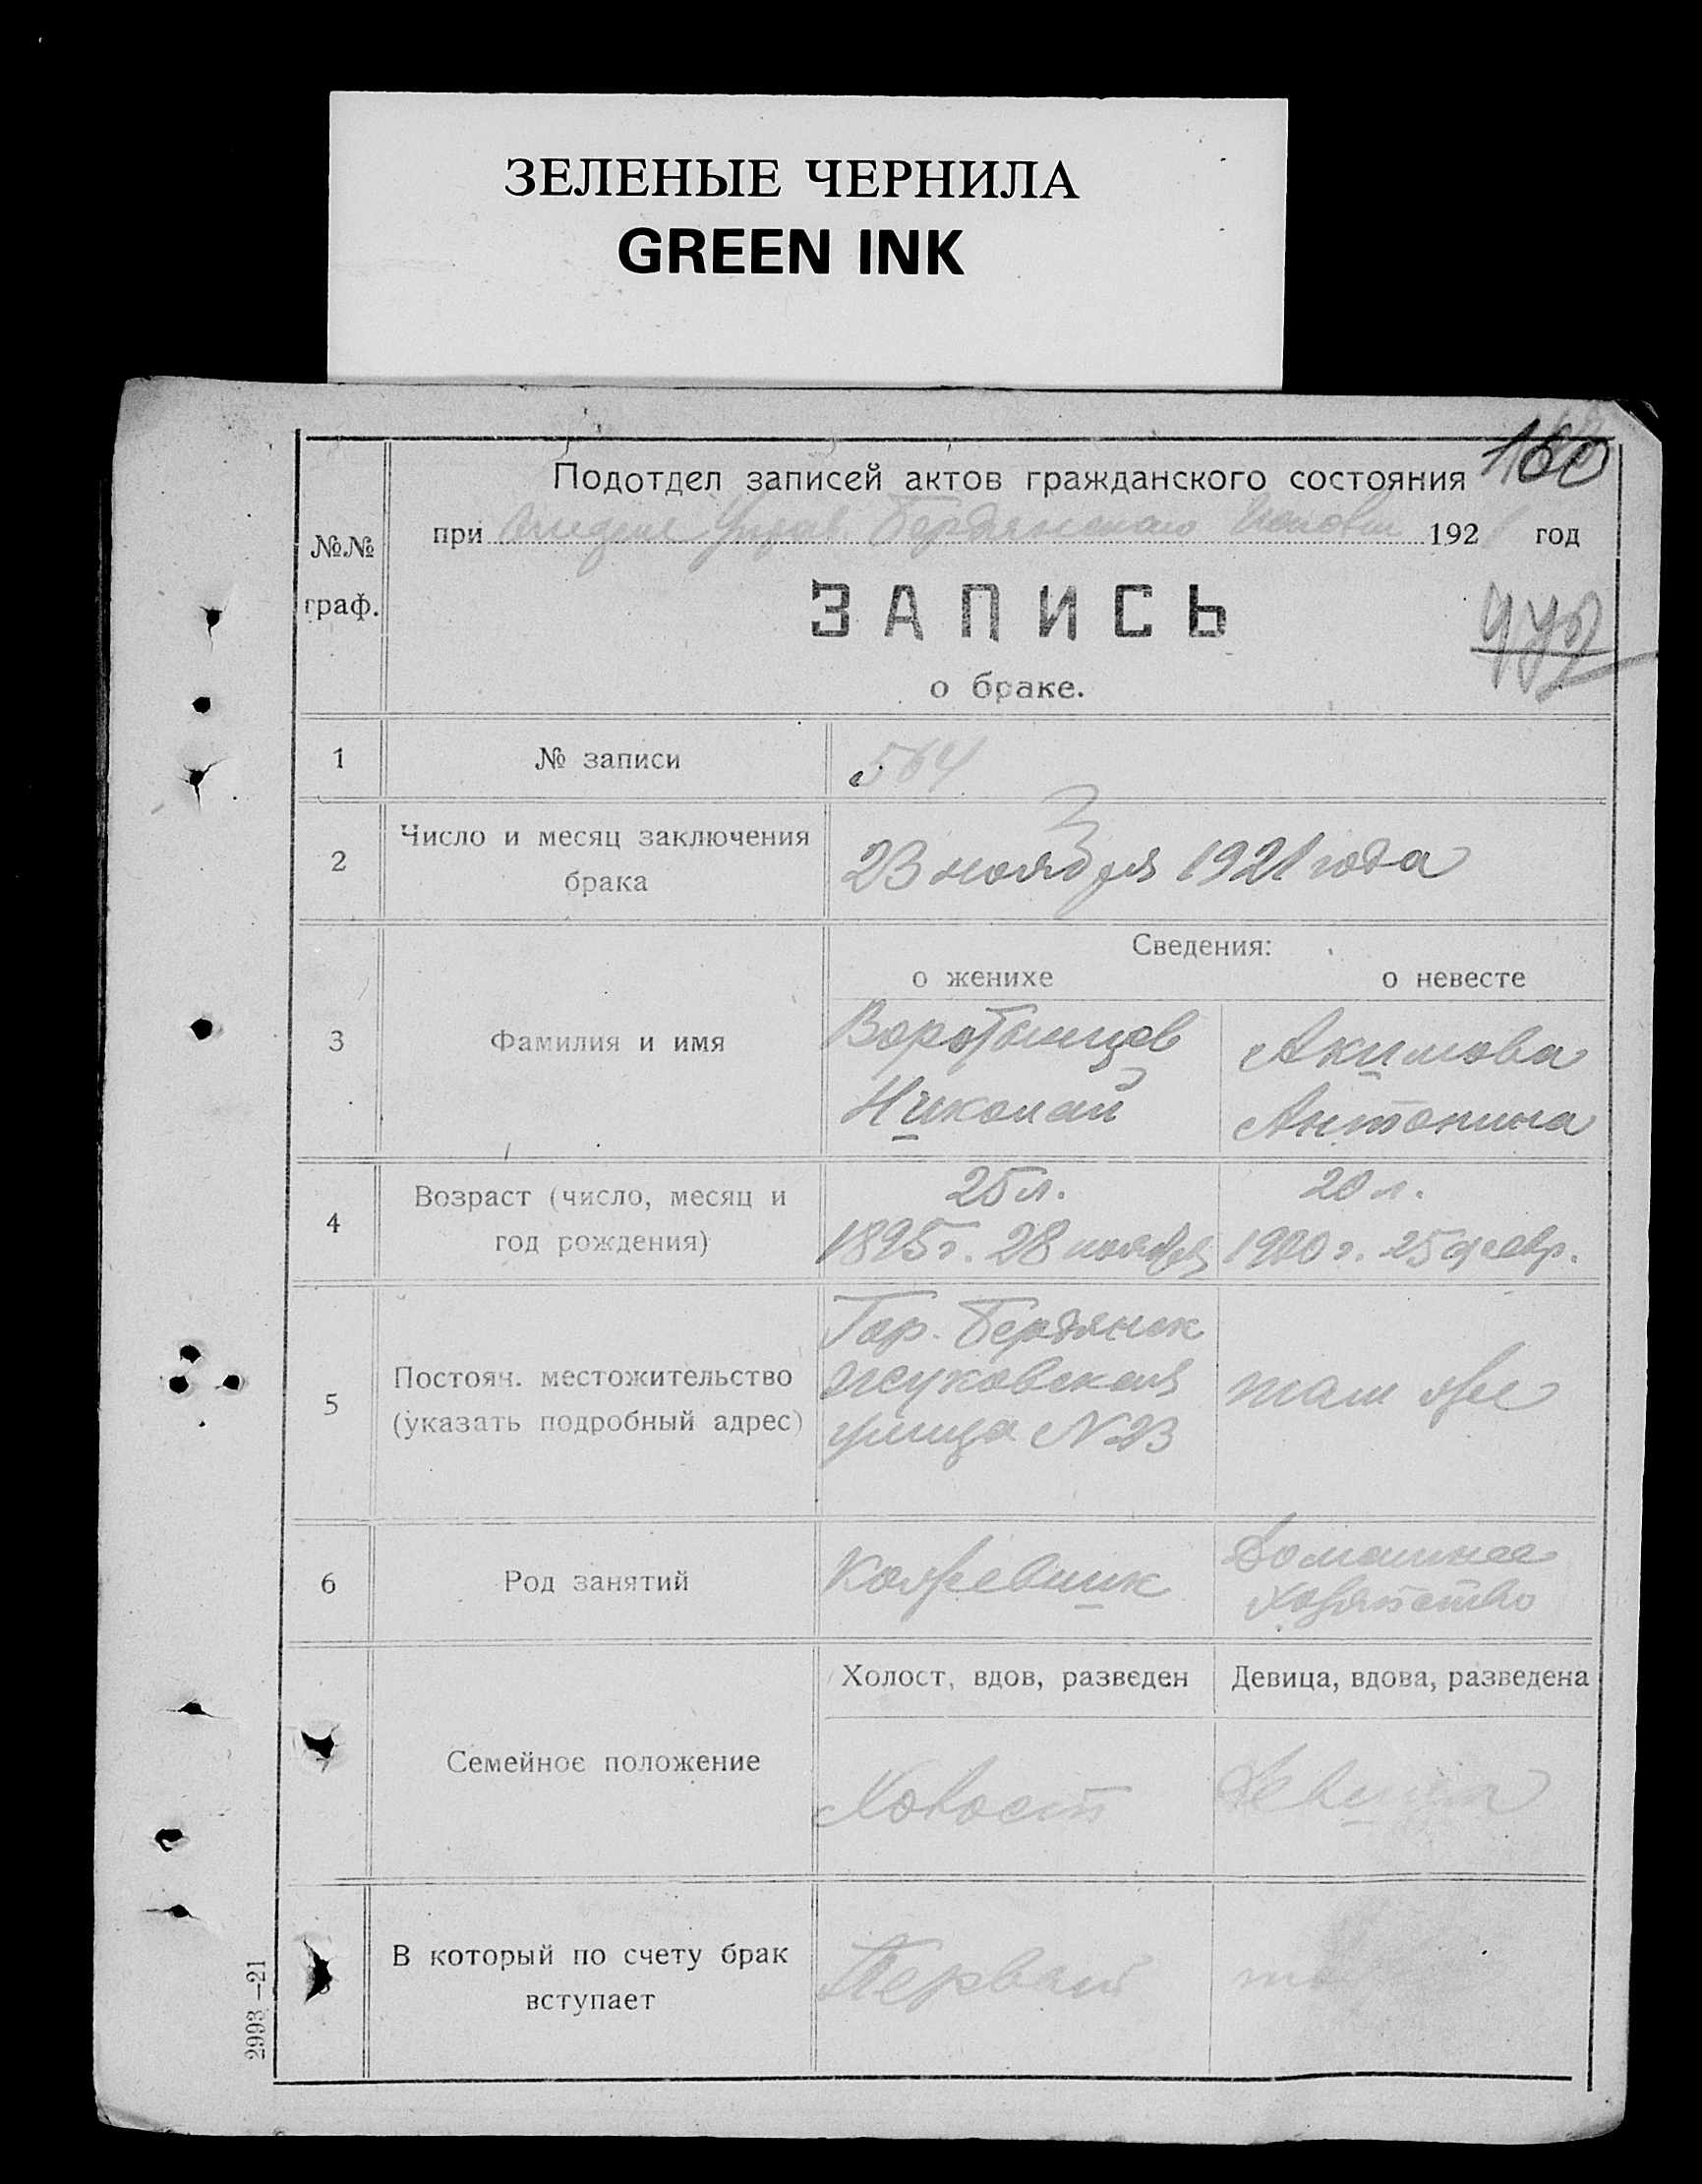 ЗЕЛЕНЫЕ ЧЕРНИЛА
GREEN INK
160
Подотдел записей актов гражданского состояния
при Отделе Управ. Бердянского Исполк. 192 1 год
№№
граф.
ЗАПИСЬ
о браке.
1 № записи 564
2 Число и месяц заключения
брака
23 ноября 1921 года
Сведения:
о женихе о невесте
3 Фамилия и имя
Воротынцев
Николай
Акимова
Антонина
4 Возраст (число, месяц и
год рождения)
25 л.
1895 г. 28 ноября
20 л.
1900 г. 25 февр.
5 Постоян. местожительство
(указать подробный адрес)
Гор. Бердянск
Жуковская
улица № 23
там же
6 Род занятий
Кожевник
Домашнее
хозяйство
7 Семейное положение
Холост, вдов, разведен
Девица, вдова, разведена
Холост
Девица
8 В который по счету брак
вступает
Первый
2993–21